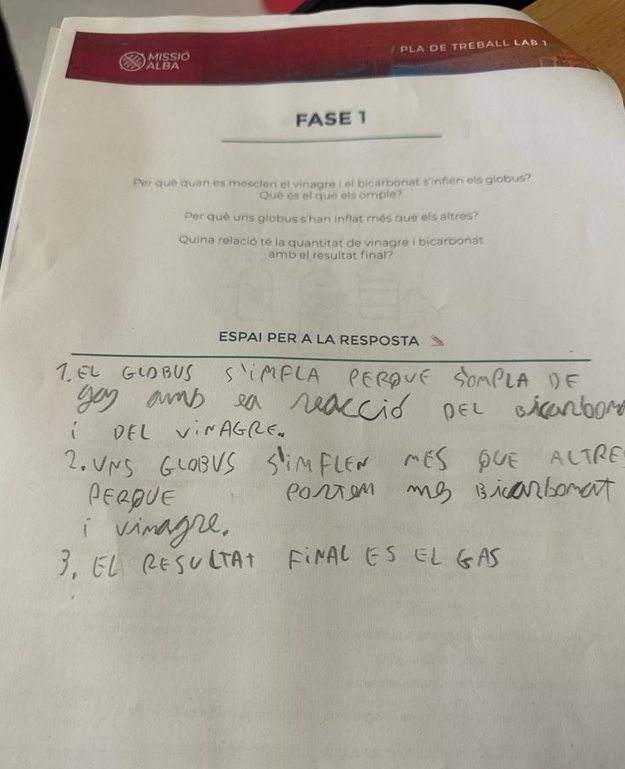 MISSIÓ
ALBA
/ PLA DE TREBALL LAB 1
FASE 1
Per què quan es mesclen el vinagre i el bicarbonat s'inflen els globus?
Què és el que els omple?
Per què uns globus s'han inflat més que els altres?
Quina relació té la quantitat de vinagre i bicarbonat
amb el resultat final?
ESPAI PER A LA RESPOSTA
1. EL GLOBUS S'IMFLA PERQUE S'OMPLA DE
gas amb ea reacció DEL Bicarbon
i DEL VINAGRE.
2. UNS GLOBUS S'IMFLEN MES QUE ALTRE
PERQUE PORTEM mes Bicarbonat
i vinagre.
3. EL RESULTAT FINAL ES EL GAS